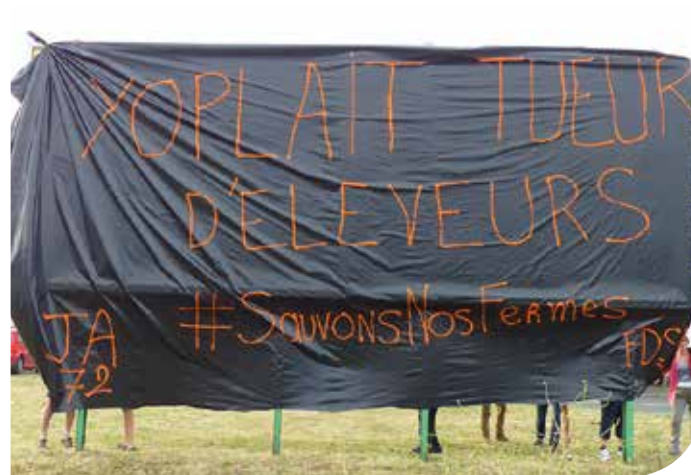 YOPLAIT TUEUR
D'ELEVEURS
#SauvonsNosFermes
JA
72
FDS